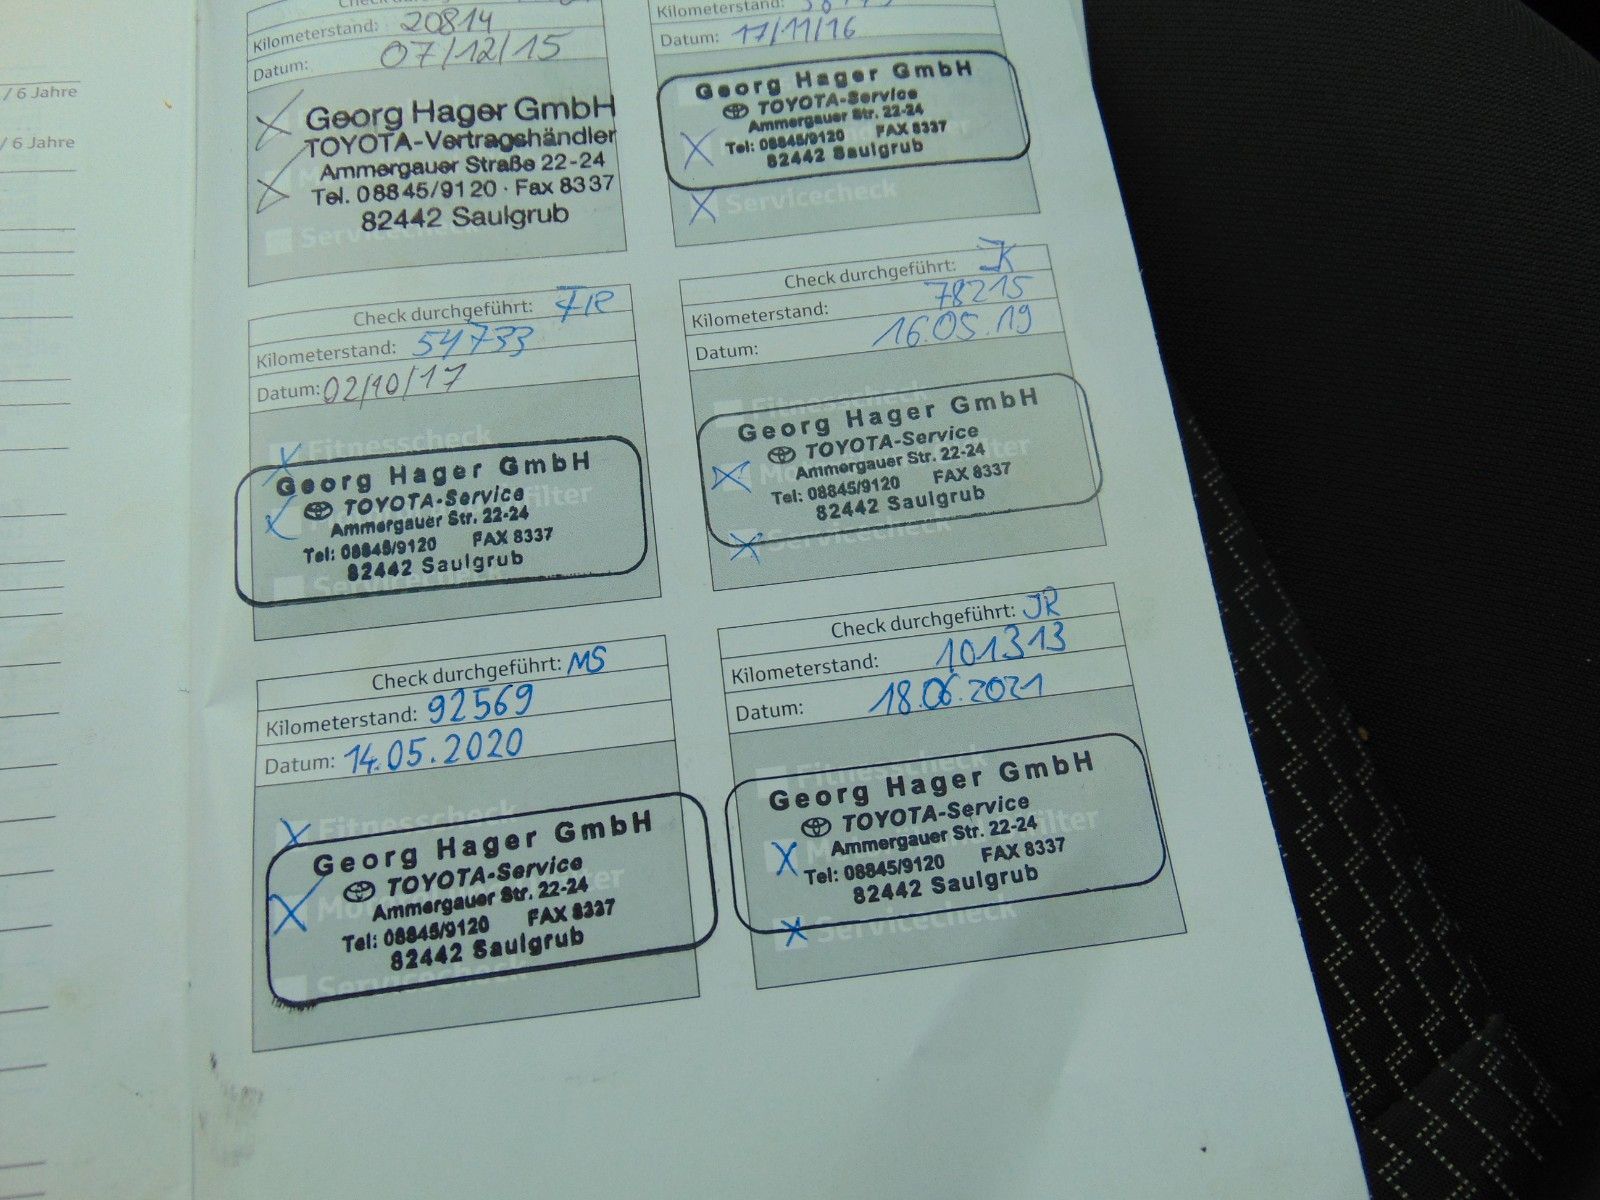 / 6 Jahre
/ 6 Jahre
Kilometerstand: 20814
Datum: 07/12/15
Georg Hager GmbH
TOYOTA-Vertragshändler
Ammergauer Straße 22-24
Tel. 08845/9120 · Fax 8337
82442 Saulgrub
Servicecheck
Kilometerstand:
Datum: 17/11/16
Georg Hager GmbH
TOYOTA-Service
Ammergauer Str. 22-24
Tel: 08845/9120 FAX 8337
82442 Saulgrub
Servicecheck
Check durchgeführt:
Kilometerstand: 54733
Datum: 02/10/17
Fitnesscheck
Georg Hager GmbH
TOYOTA-Service
Ammergauer Str. 22-24
Tel: 08845/9120 FAX 8337
82442 Saulgrub
Servicecheck
Check durchgeführt: JK
Kilometerstand: 78215
Datum: 16.05.19
Fitnesscheck
Georg Hager GmbH
TOYOTA-Service
Ammergauer Str. 22-24
Tel: 08845/9120 FAX 8337
82442 Saulgrub
Servicecheck
Check durchgeführt: MS
Kilometerstand: 92569
Datum: 14.05.2020
Fitnesscheck
Georg Hager GmbH
TOYOTA-Service
Ammergauer Str. 22-24
Tel: 08845/9120 FAX 8337
82442 Saulgrub
Servicecheck
Check durchgeführt: JR
Kilometerstand: 101313
Datum: 18.06.2021
Fitnesscheck
Georg Hager GmbH
TOYOTA-Service
Ammergauer Str. 22-24
Tel: 08845/9120 FAX 8337
82442 Saulgrub
Servicecheck